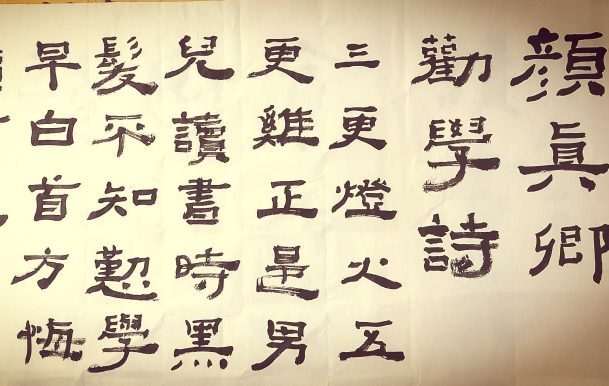 顔眞卿
勸學詩
三更燈火五
更雞正是男
兒讀書時黑
髮不知懃學
早白首方悔